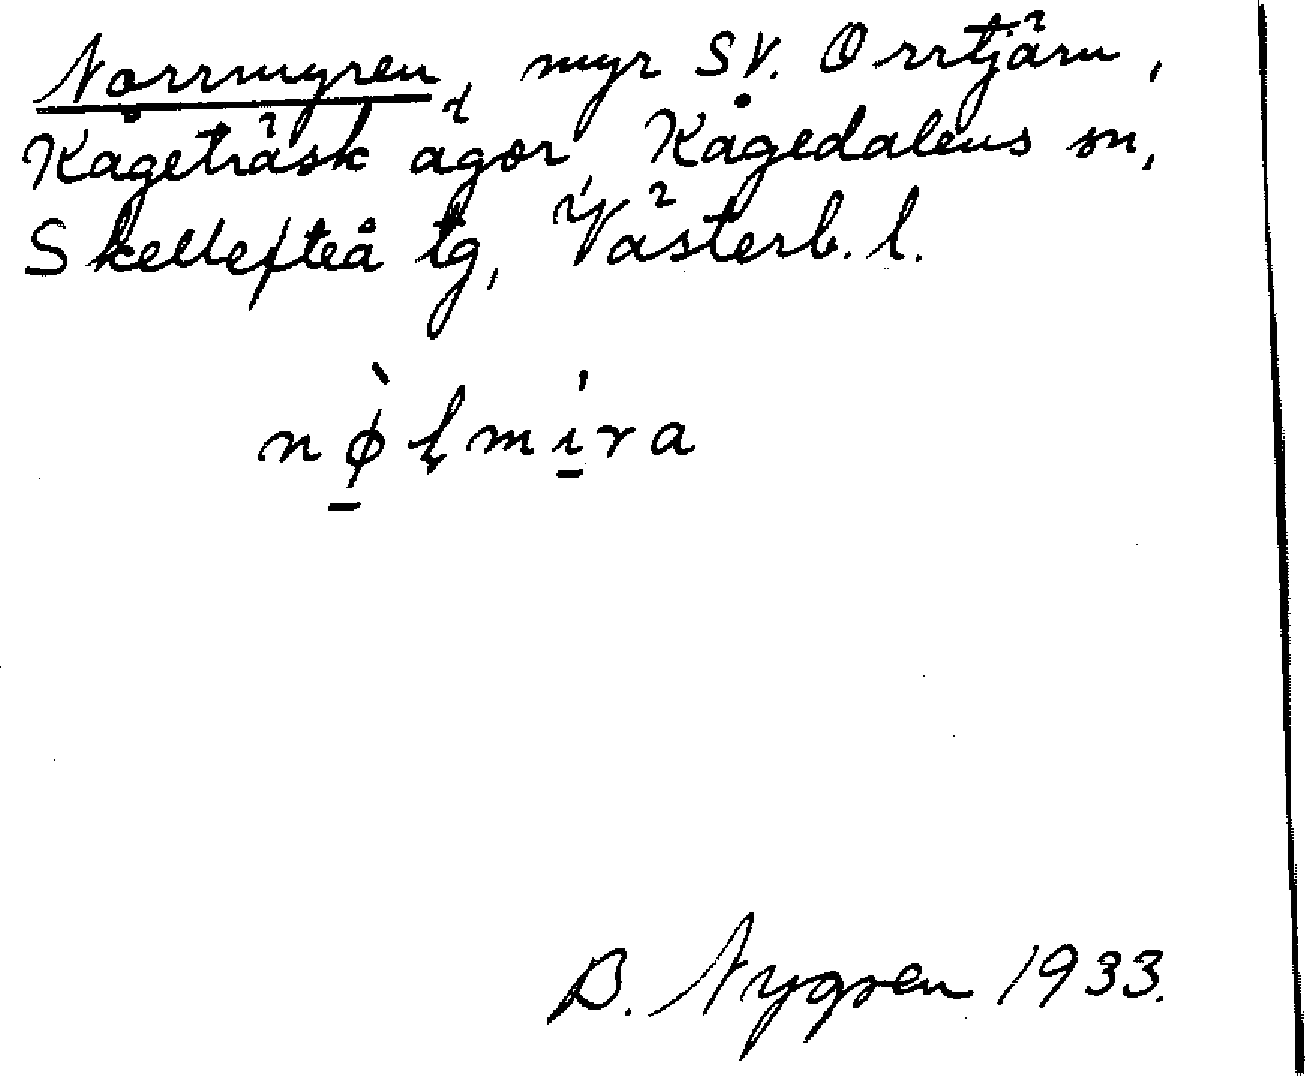 Norrmyren, myr SV. Orrtjärn,
Kågeträsk ägor, Kågedalens sn,
Skellefteå tg, Västerb. l.
nø̲̀ɬmí̲ra
B. Nygren 1933.